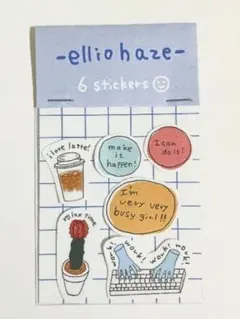 -elliohaze-
6 stickers
i love latte!
make
it
happen!
I can
do it!
I'm
very very
busy girl!!
relax time
work! work! work! work!